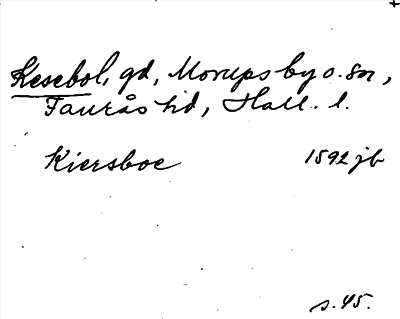 Kesebol, gd, Morups by o. sn,
Faurås hd, Hall. l.
Kiersboe 1592 jb
s. 45.